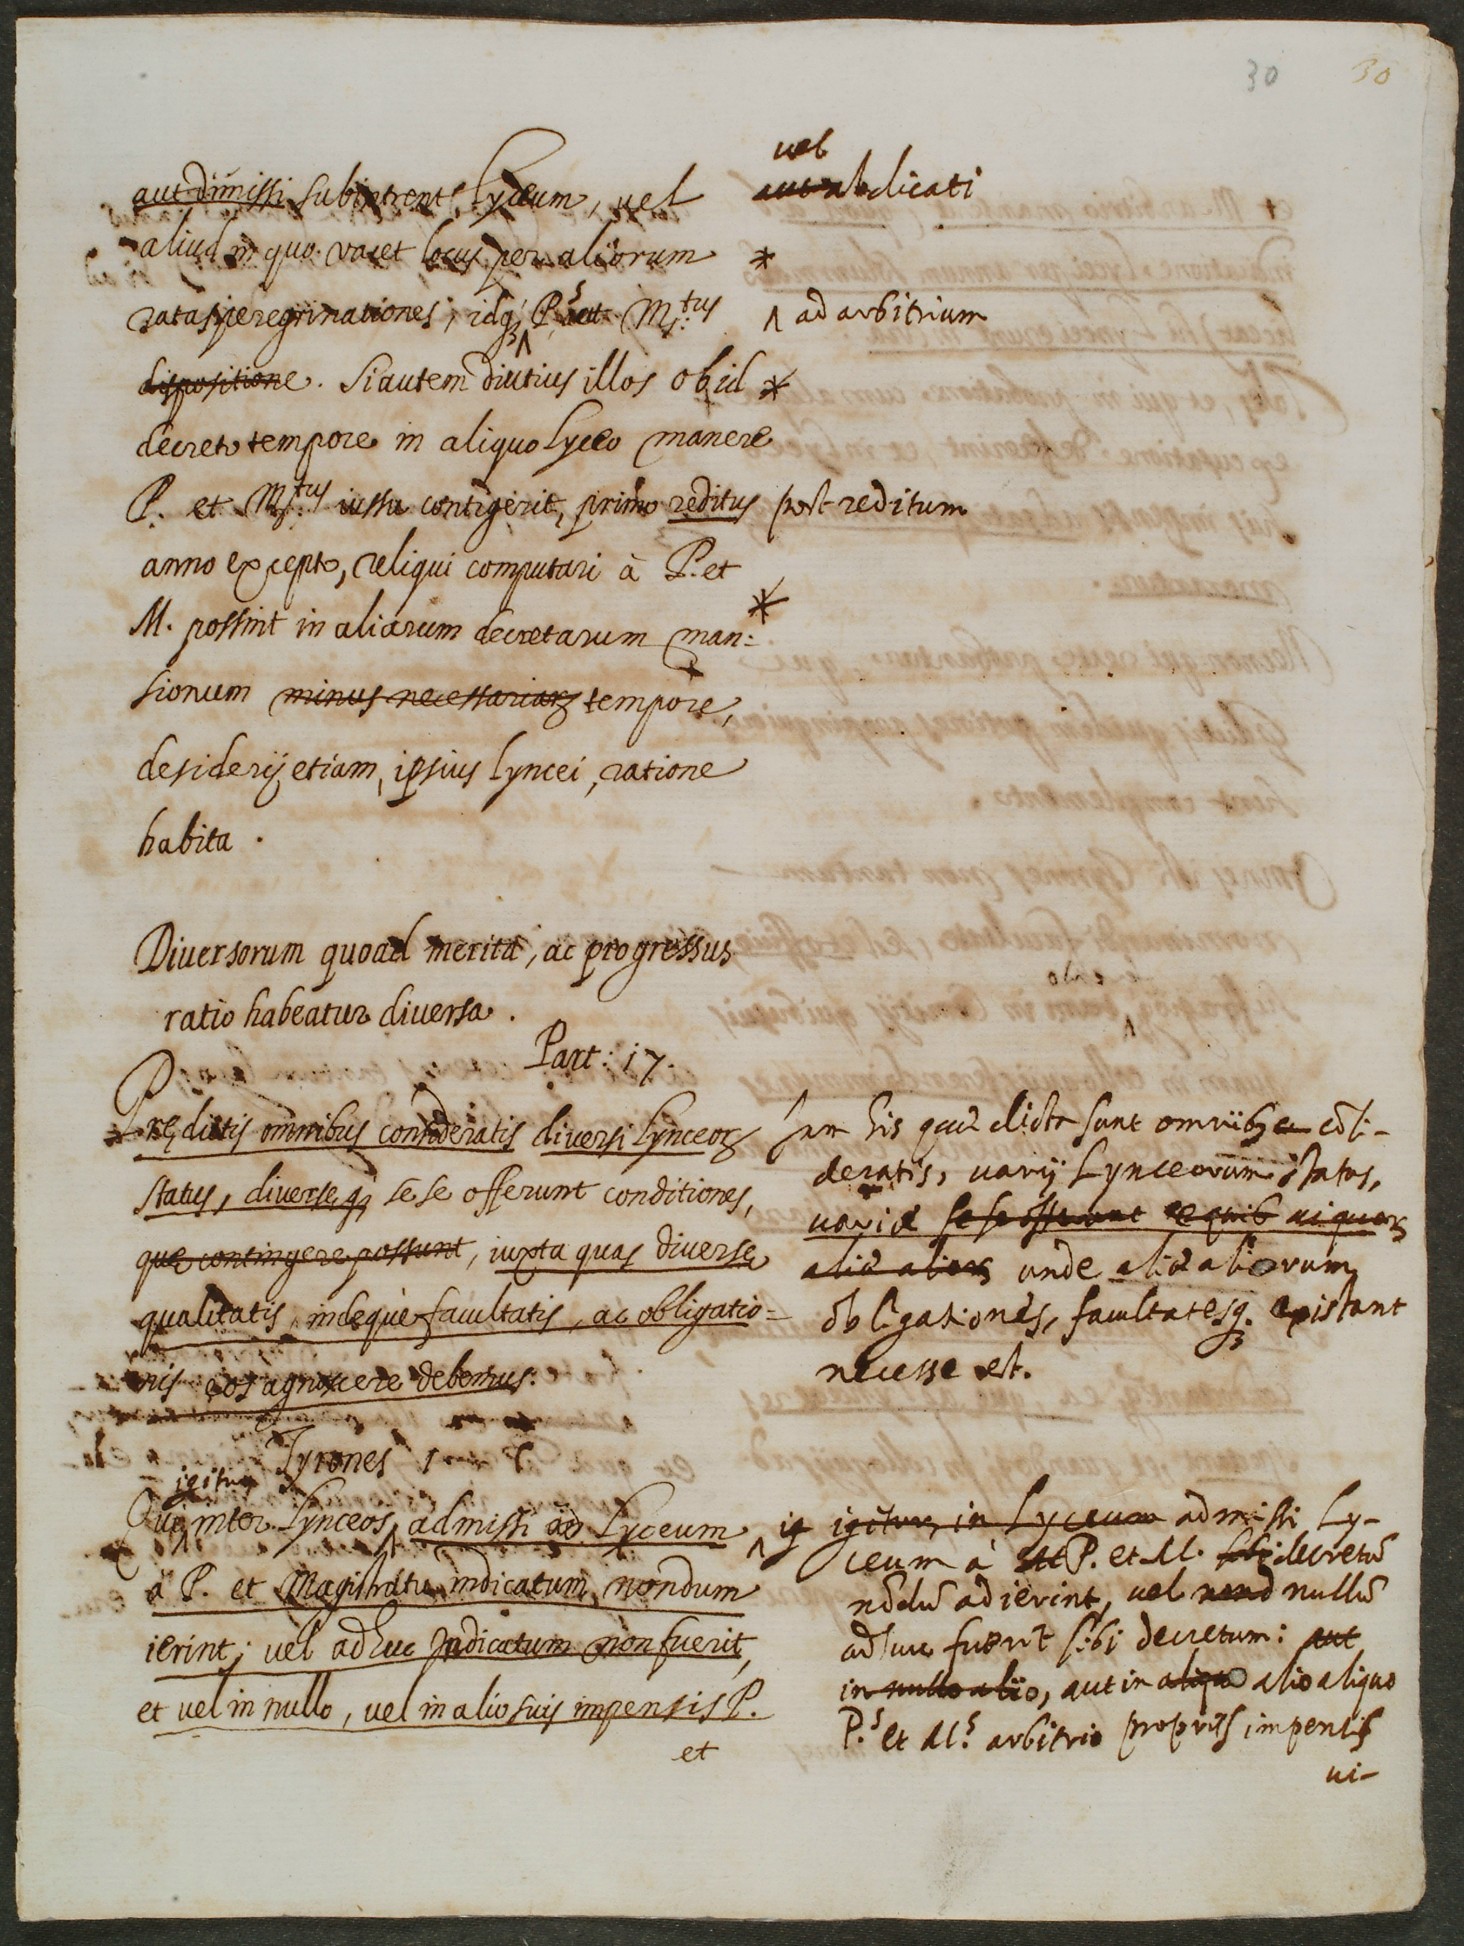 30 30
aut dimissi subintrent Lyceum, vel
aliud in quo vacet locus per aliorum
ratas peregrinationes; idq; P.s et M.tus
dispositione. Si autem diutius illos ob id
decreto tempore in aliquo Lyceo manere
P. et M.tus iussu contigerit, primo reditus
anno excepto, reliqui computari à P. et
M. possint in aliarum decretarum man:
sionum minus necessariarum tempore,
desiderij etiam, ipsius Lyncei, ratione
habita.
vel
aut abdicati
*
^ ad arbitrium
*
post reditum
*
Diversorum quoad merita, ac progressus
ratio habeatur diversa.
Part: 17.
Prędictis omnibus consideratis diversi Lynceorum
status, diversęq; sese offerunt conditiones,
quę contingere possunt, iuxta quas diversę
qualitatis, indequè facultatis, ac obligatio=
nis eos agnoscere debemus.
Jam his quæ dicta sunt omnibus cōsi-
deratis, varij Lynceorum status,
variæ se se offerunt
aliæ unde aliæ aliorum
obligationes, facultatesq. existant
necesse est.
Tyrones 1
igitur
Qui inter Lynceos admissi ad Lyceum
à P. et Magistratu indicatum nondum
ierint; vel adhuc indicatum non fuerit,
et vel in nullo, vel in alio suis impensis P.
et
^ igitur in Lyceum admissi Ly-
ceum à P. et M. sibi decretū
nōdū adierint, vel nullū
adhuc fuerit sibi decretum: aut
in nullo alio, aut in aliquo alio aliquo
P.s et M.s arbitrio proprijs impensis
vi-